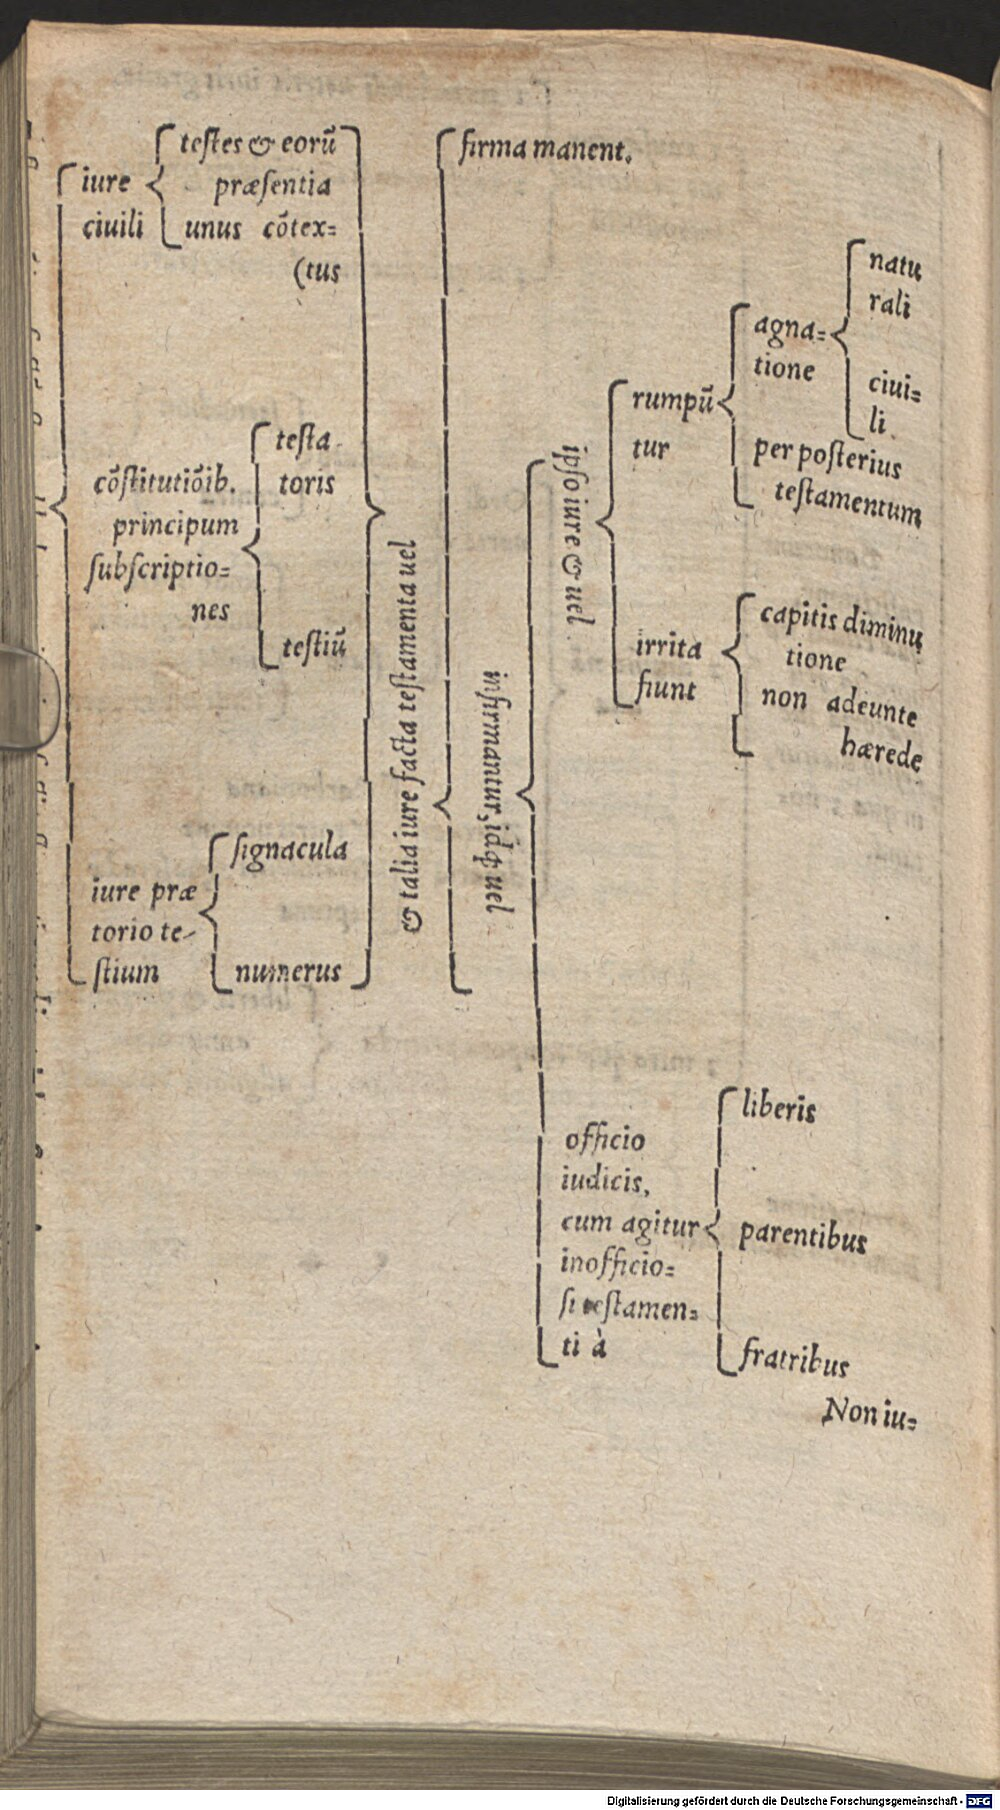 iure
ciuili
testes & eorū
præsentia
unus cōtex=
(tus
cōstitutiōib.
principum
subscriptio=
nes
testa
toris
testiū
iure præ
torio te-
stium
signacula
numerus
& talia iure facta testamenta uel
firma manent.
infirmantur, idq́ uel
ipso iure & uel
rumpū
tur
agna=
tione
natu
rali
ciui=
li
per posterius
testamentum
irrita
fiunt
capitis diminu
tione
non adeunte
hærede
officio
iudicis,
cum agitur
inofficio=
si testamen=
ti à
liberis
parentibus
fratribus
Non iu=
Digitalisierung gefördert durch die Deutsche Forschungsgemeinschaft - DFG